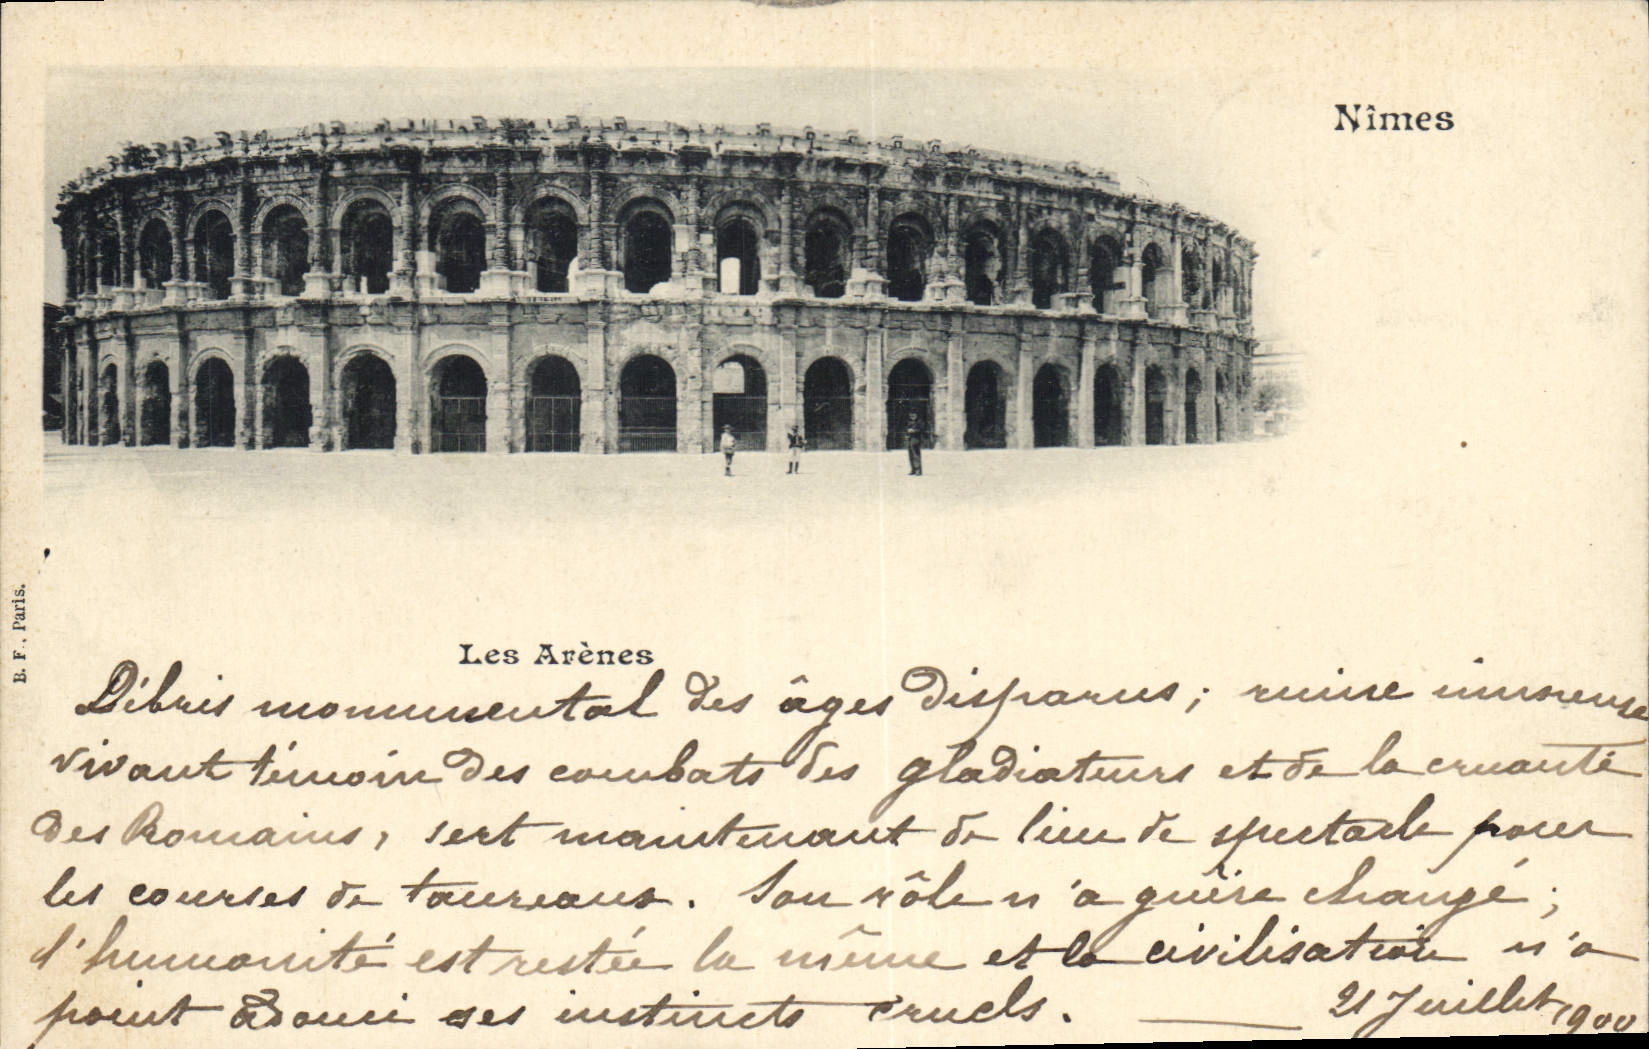 Nîmes
B. F., Paris.
Les Arènes
Débris monumental des âges disparus ; ruine immense
vivant témoin des combats des gladiateurs et de la cruauté
des Romains, sert maintenant de lieu de spectacle pour
les courses de taureaux. Son rôle n'a guère changé ;
l'humanité est restée la même et la civilisation n'a
point adouci ses instincts cruels. — 21 Juillet 1900